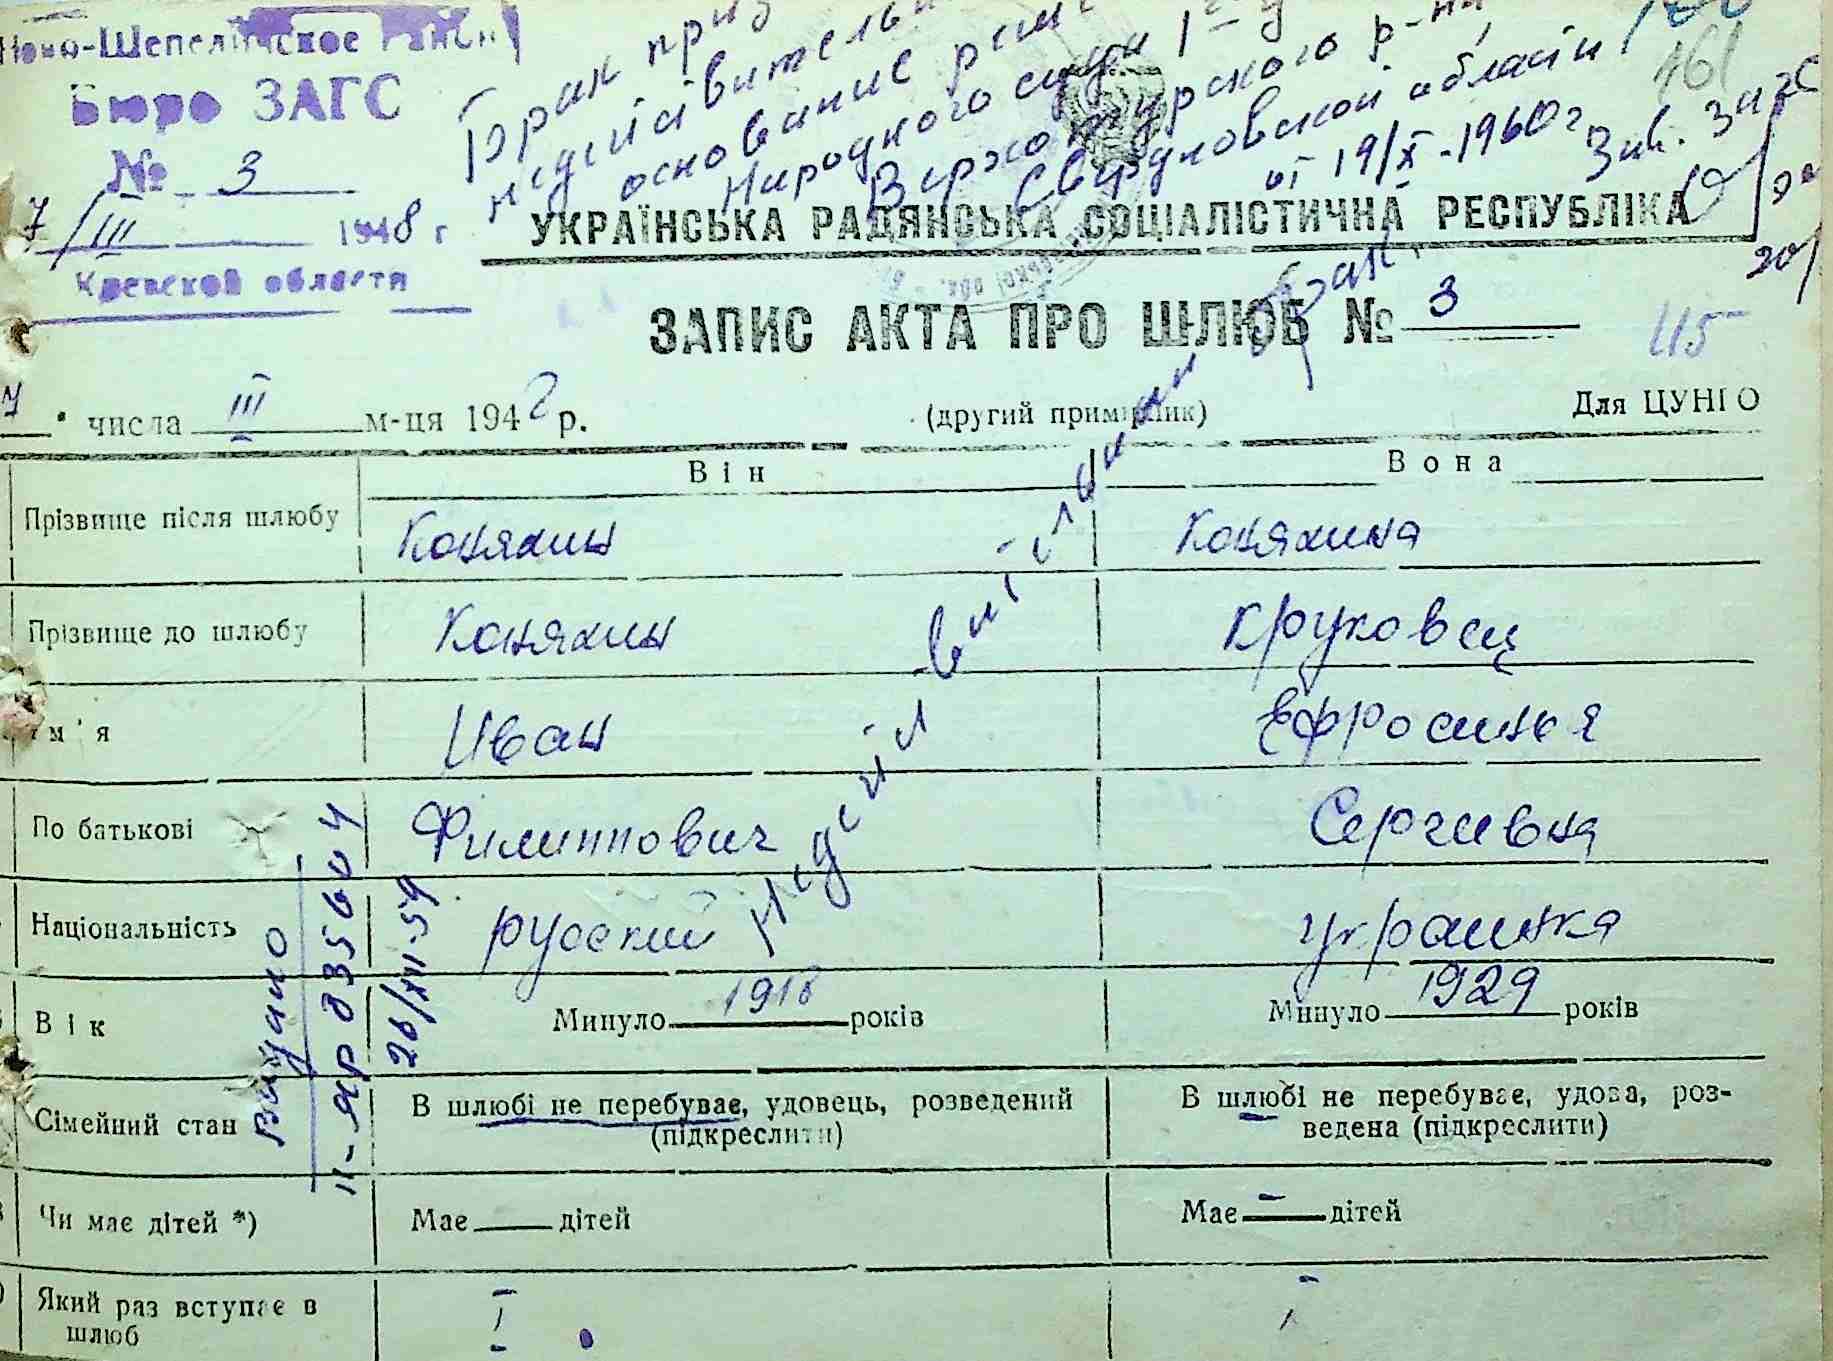 Ново-Шепелічское
Бюро ЗАГС
№ 3
7/III 1948 г
Киевской области
Брак приз
недействитель
основание реш
Народного суда 1го у
Верхотурского р-на
Свердловской области
от 19/X-1960г
Зав. Загс
161
УКРАЇНСЬКА РАДЯНСЬКА СОЦІАЛІСТИЧНА РЕСПУБЛІКА
ЗАПИС АКТА ПРО ШЛЮБ № 3
115
7 " числа III м-ця 1948 р.
(другий примірник)
Для ЦУНГО
Він
Вона
Прізвище після шлюбу
Коняхин
Коняхина
Прізвище до шлюбу
Коняхин
Круковец
Ім'я
Иван
Ефросинья
По батькові
Филиппович
Сергиевна
Національність
русский
украинка
Вік
Минуло 1918 років
Минуло 1929 років
Сімейний стан
В шлюбі не перебуває, удовець, розведений
(підкреслити)
В шлюбі не перебуває, удова, роз-
ведена (підкреслити)
Чи має дітей *)
Має дітей
Має - дітей
Який раз вступає в
шлюб
I
I
Видано
II-ЯР 035604
26/XII-59
брак